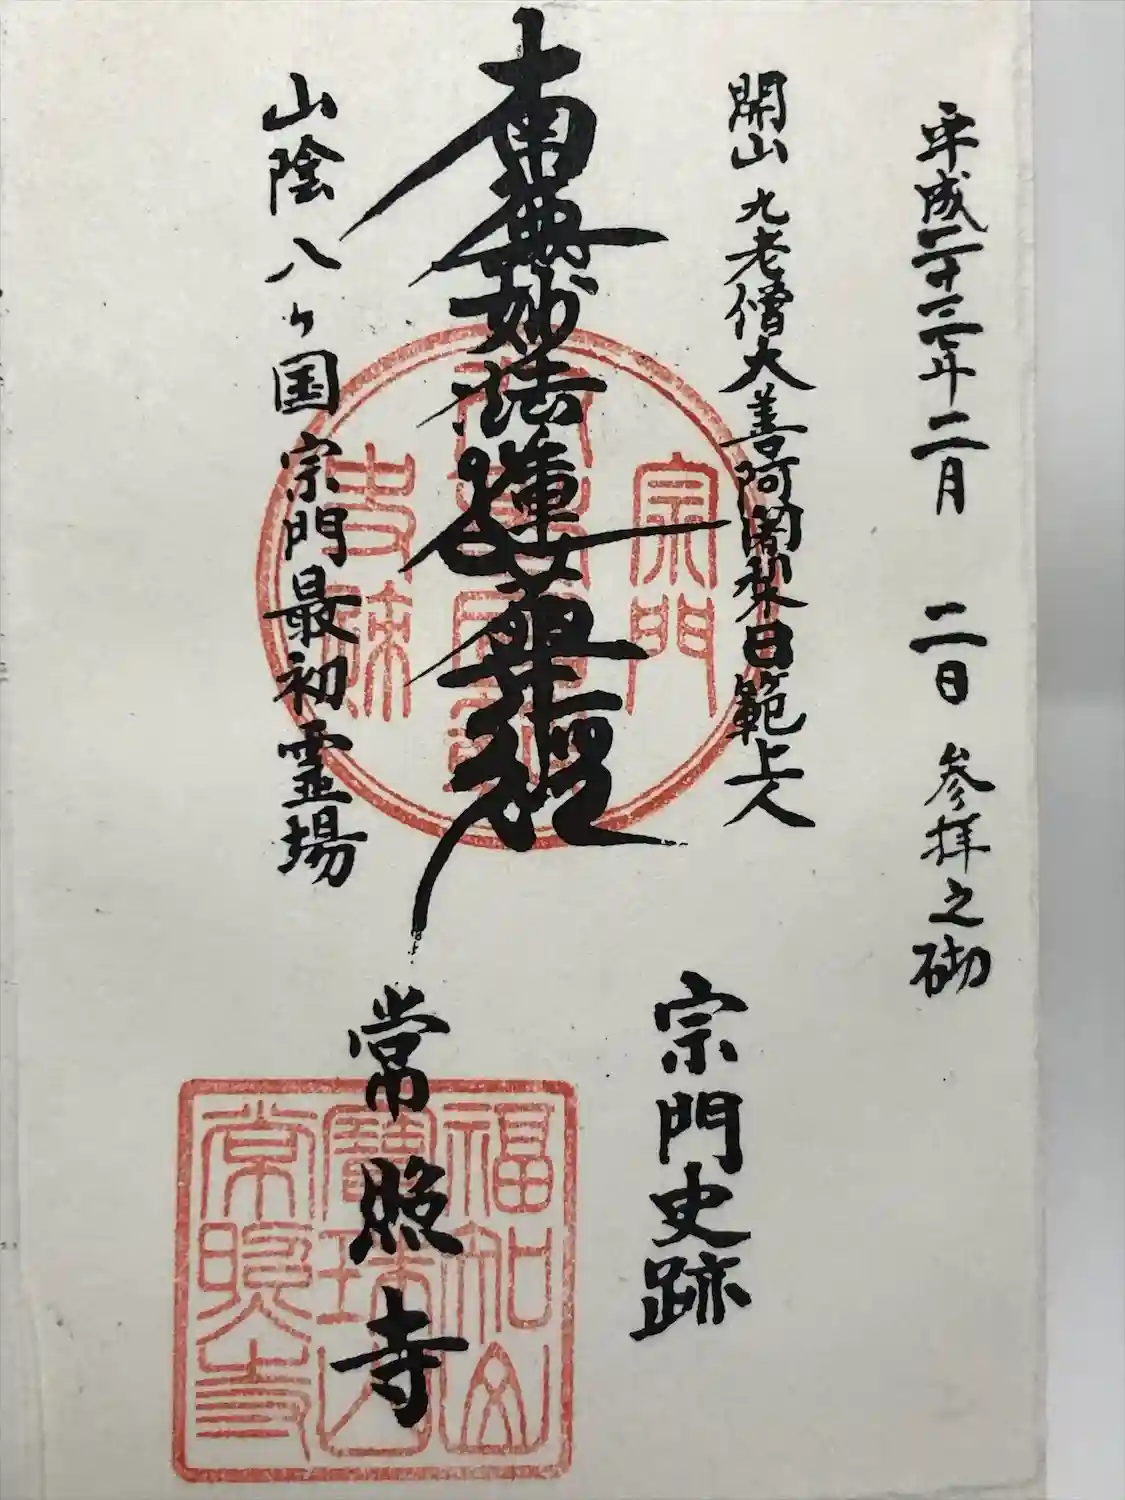 平成二十三年二月 二日 参拝之砌
開山 九老僧大善阿闍梨日範上人
宗門史跡
南無妙法蓮華経
常照寺
山陰八ヶ国宗門最初霊場
宗門
史跡
福知山
常照寺